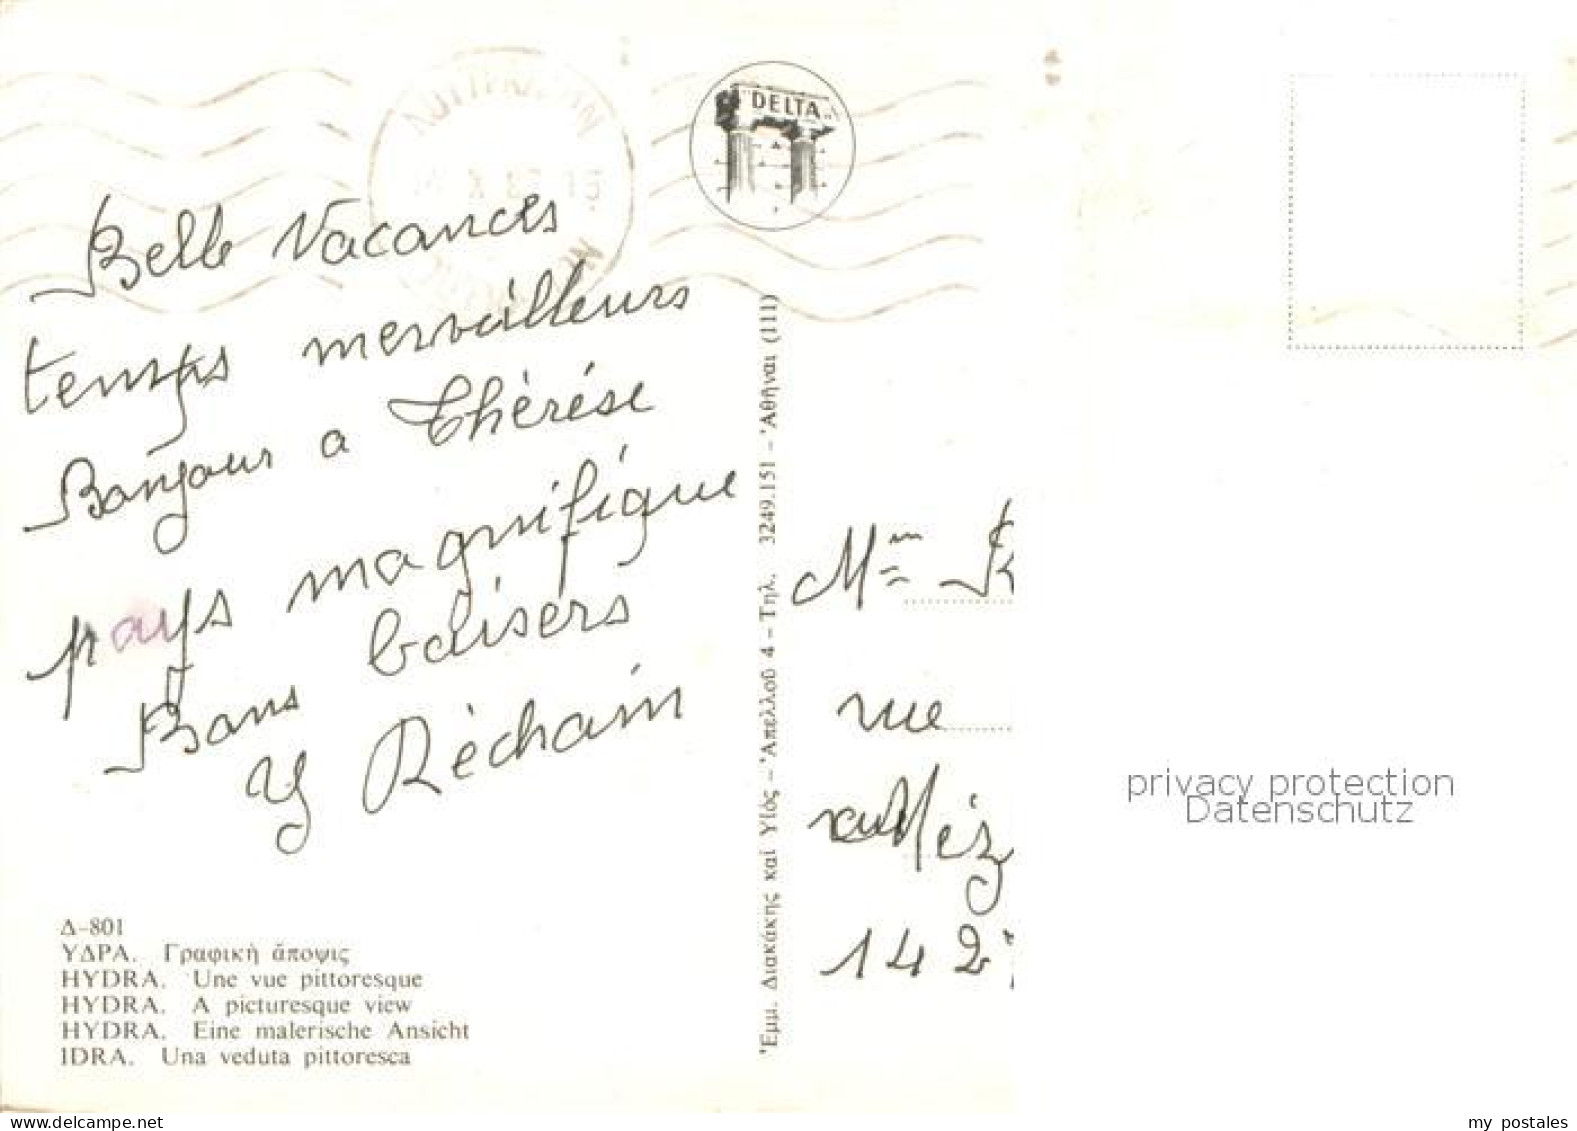 DELTA
Belle Vacances
temps merveilleurs
Bonjour a Thérése
pays magnifique
Bons baisers
Y Réchain
Δ-801
ΥΔΡΑ. Γραφικὴ ἄποψις
HYDRA. Une vue pittoresque
HYDRA. A picturesque view
HYDRA. Eine malerische Ansicht
IDRA. Una veduta pittoresca
Ἐμμ. Διακάκης καὶ Υἱός – Ἀπελλοῦ 4 – Τηλ. 3249.151 – Ἀθῆναι (111)
Mme
rue
Méz
142
privacy protection
Datenschutz
my postales